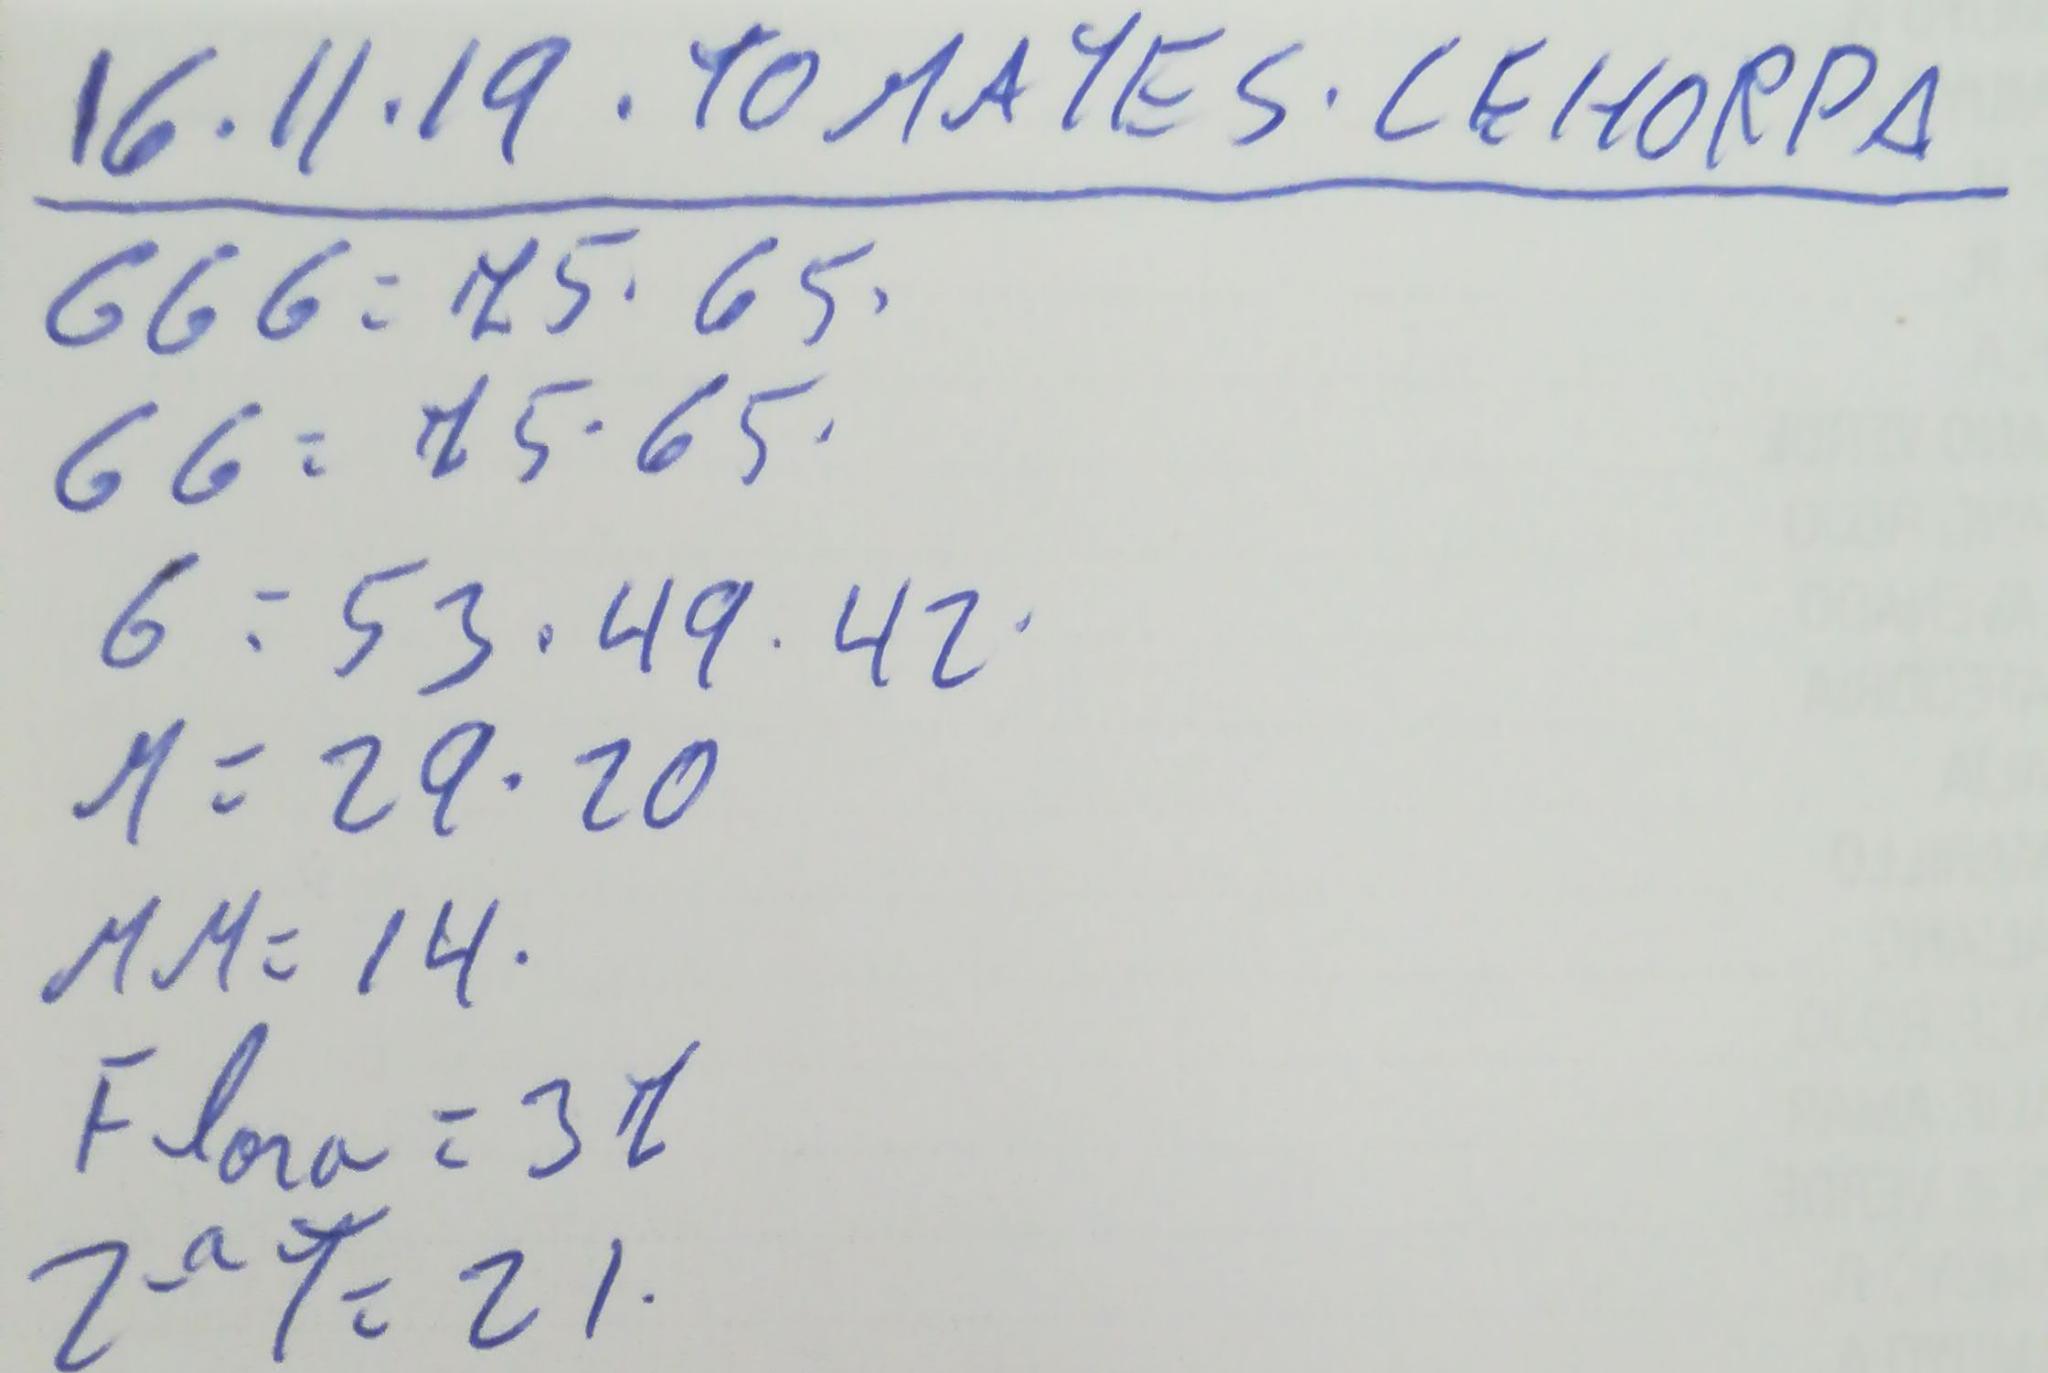 16.11.19. TOMATES. CEHORPA
GGG = 75. 65.
GG = 75. 65.
G = 53. 49. 42.
M = 29. 20
MM = 14.
Flora = 37
2ª T = 21.